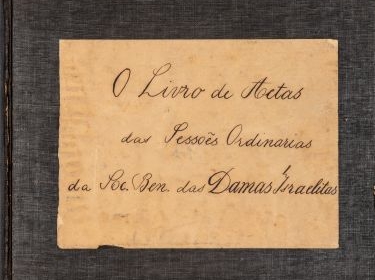 O Livro de Actas
das Sessoēs Ordinarias
da Soc. Ben. das Damas Israelitas